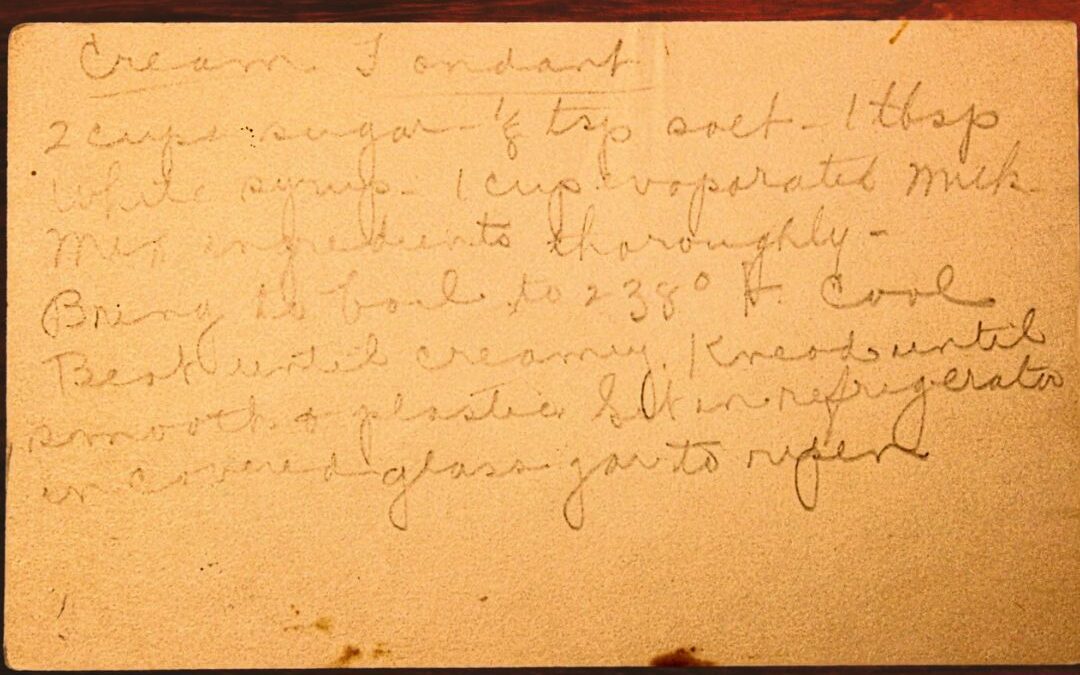 Cream Fondant
2 cups sugar - 1/8 tsp salt - 1 tbsp
White syrup - 1 cup evaporated milk -
Mix ingredients thoroughly -
Bring to boil to 238° F. Cool
Beat until creamy. Knead until
smooth & plastic Set in refrigerator
in covered glass jar to ripen